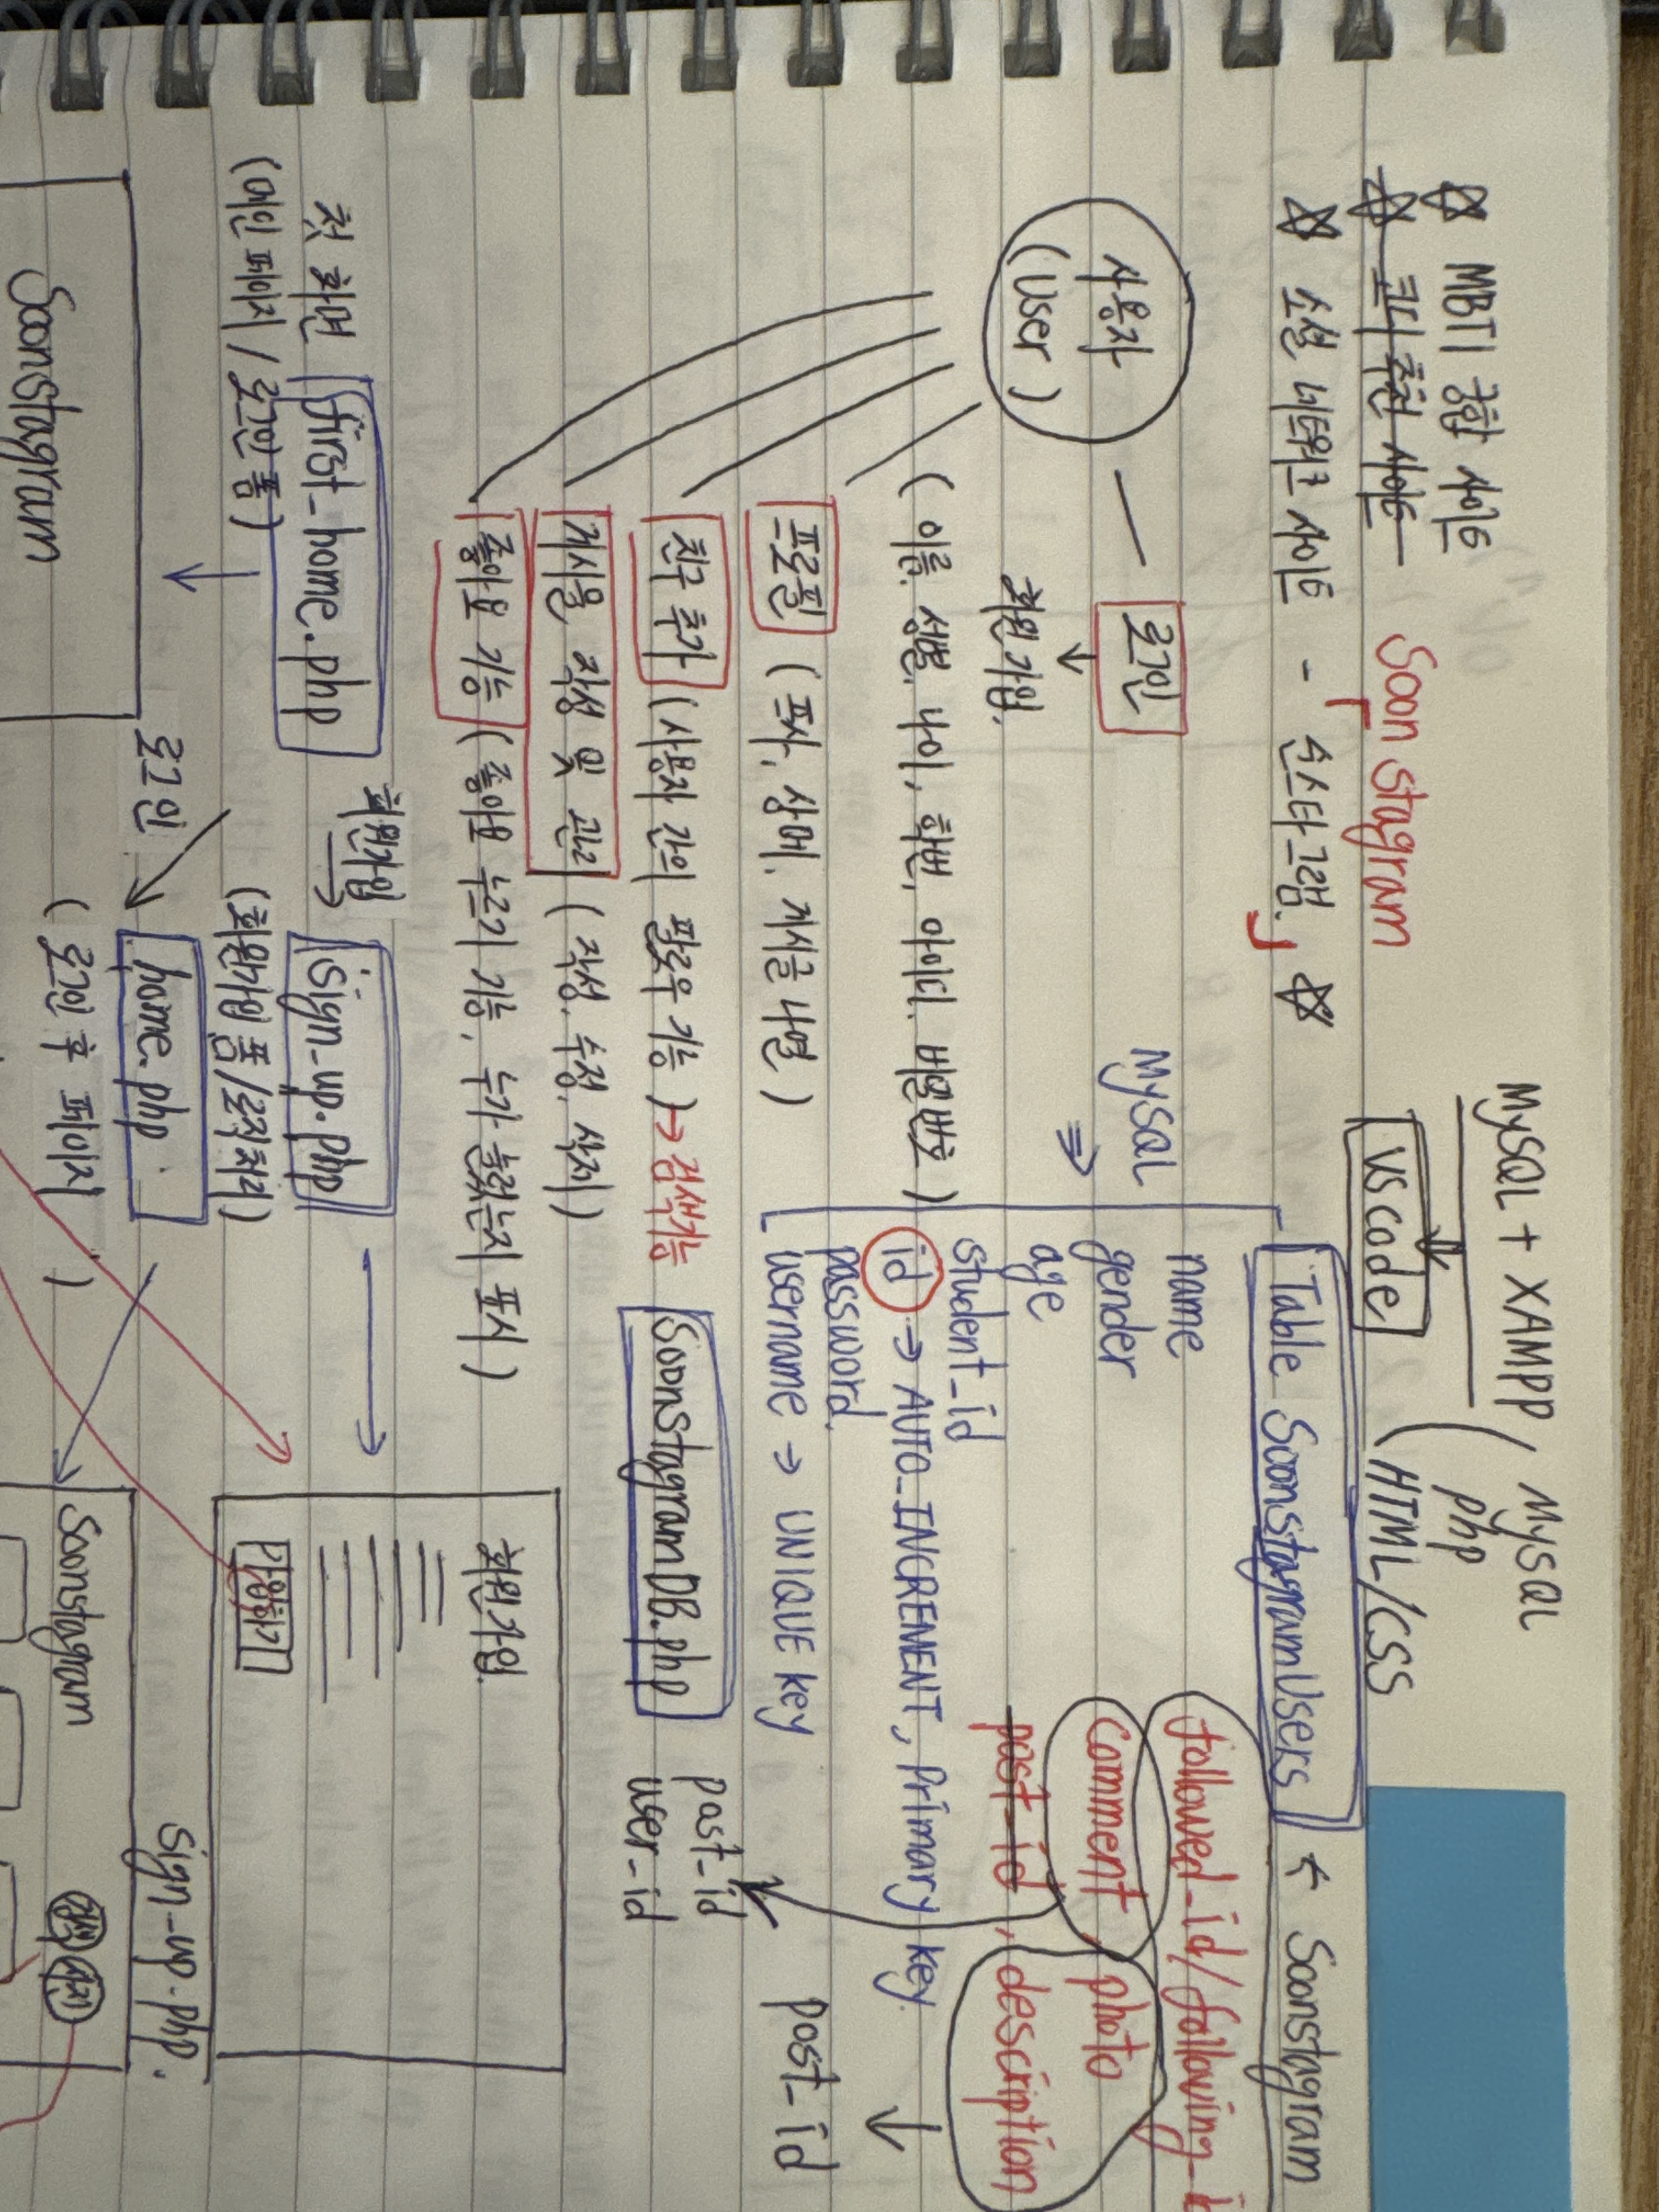 ☆ MBTI 궁합 사이트
☆ 코디 추천 사이트
Soonstagram
☆ 소셜 네트워크 사이트 - 「순스타그램」 ☆
MySQL + XAMPP
VS code
MySQL
php
HTML/CSS
사용자
(user)
로그인
↓
회원가입.
(이름, 성별, 나이, 학번, 아이디, 비밀번호)
프로필 (프사, 상메, 게시글 나열)
친구 추가 (사용자 간의 팔로우 기능) → 검색기능
게시물 작성 및 관리 (작성, 수정, 삭제)
좋아요 기능 (좋아요 누르기 기능, 누가 눌렀는지 표시)
MySQL
⇒
Table SoonstagramUsers ← Soonstagram
name
gender
age
student_id
id → AUTO_INCREMENT, Primary key.
password.
username ⇒ UNIQUE key
followed_id/following_
comment, photo
post_id, description
↓
post_id
post_id
user_id
SoonstagramDB.php
첫 화면 first_home.php
(메인 페이지 / 로그인 폼)
회원가입
→
sign_up.php
(회원가입 폼/로직처리)
로그인
home.php
(로그인 후 페이지)
Soonstagram
회원가입.
sign_up.php.
Soonstagram